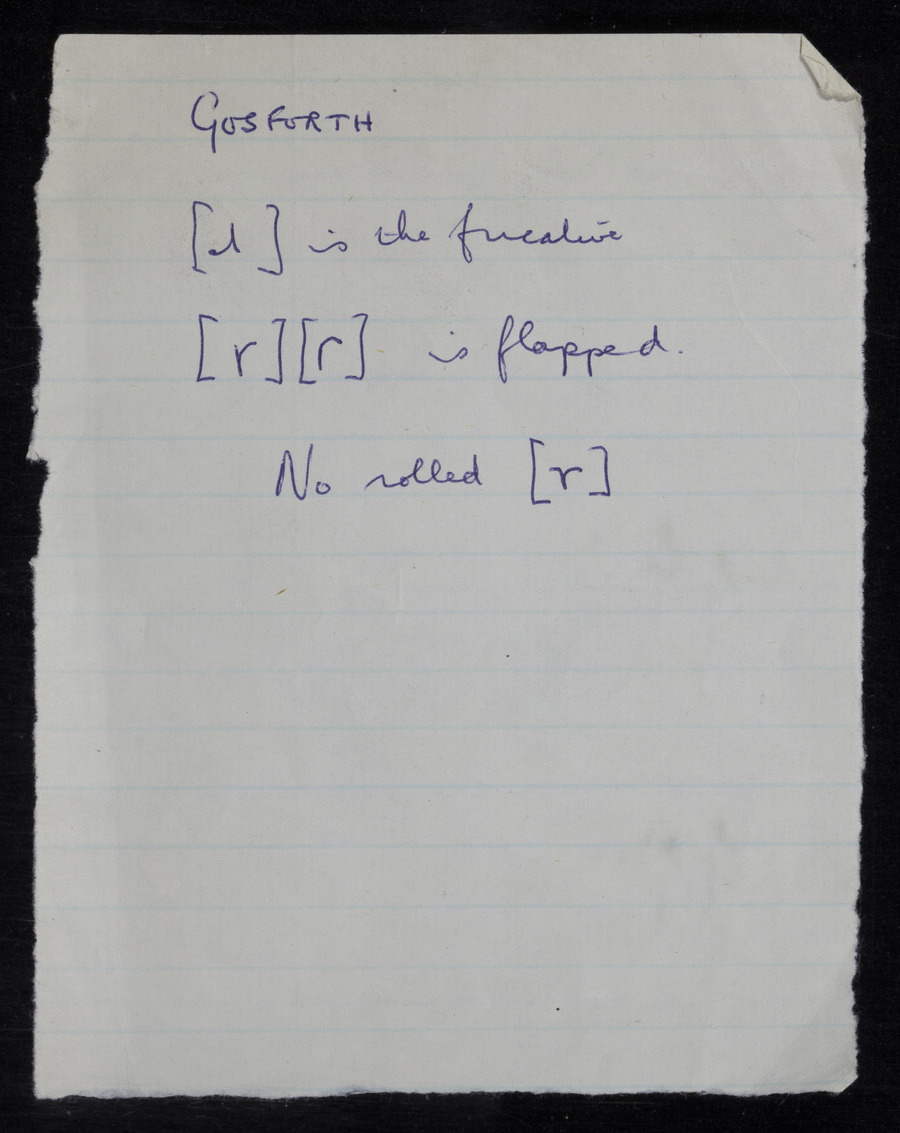 GOSFORTH
[ɹ] is the fricative
[r][ɾ] is flapped.
No rolled [r]